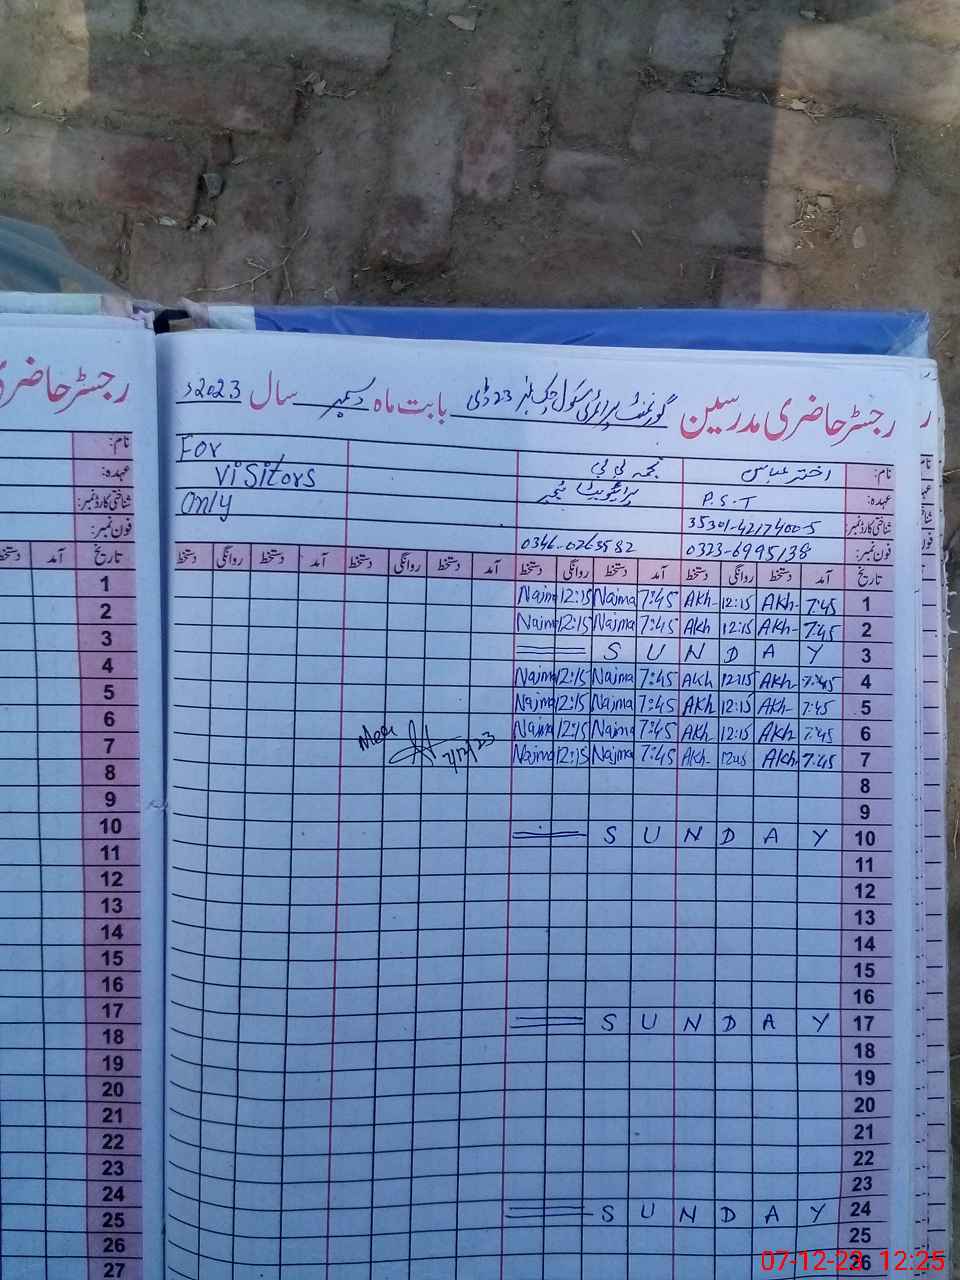 رجسٹر حاضری مدرسین گورنمنٹ پرائمری سکول چک نمبر 23 ڈی بابت ماہ دسمبر سال 2023ء
نام: اختر عباس نجمہ بی بی For
عہدہ: P.S.T پرائیویٹ ٹیچر Visitors
شناختی کارڈ نمبر: 35301-4217400-5 Only
فون نمبر: 0323-6995138 0346-0263582
تاریخ آمد دستخط روانگی دستخط آمد دستخط روانگی دستخط آمد دستخط روانگی دستخط آمد دستخط روانگی دستخط
1 7:45 Akh- 12:15 Akh- 7:45 Najma 12:15 Najma
2 7:45 Akh- 12:15 Akh 7:45 Najma 12:15 Najma
3 S U N D A Y
4 7:45 Akh- 12:15 Akh 7:45 Najma 12:15 Najma
5 7:45 Akh- 12:15 Akh 7:45 Najma 12:15 Najma
6 7:45 Akh- 12:15 Akh 7:45 Najma 12:15 Najma
7 7:45 Akh 12:15 Akh- 7:45 Najma 12:15 Najma 7/12/23
8
9
10 S U N D A Y
11
12
13
14
15
16
17 S U N D A Y
18
19
20
21
22
23
24 S U N D A Y
25
26
رجسٹر حاضری
نام:
عہدہ:
شناختی کارڈ نمبر:
فون نمبر:
تاریخ آمد دستخط
1
2
3
4
5
6
7
8
9
10
11
12
13
14
15
16
17
18
19
20
21
22
23
24
25
26
27
07-12-23 12:25